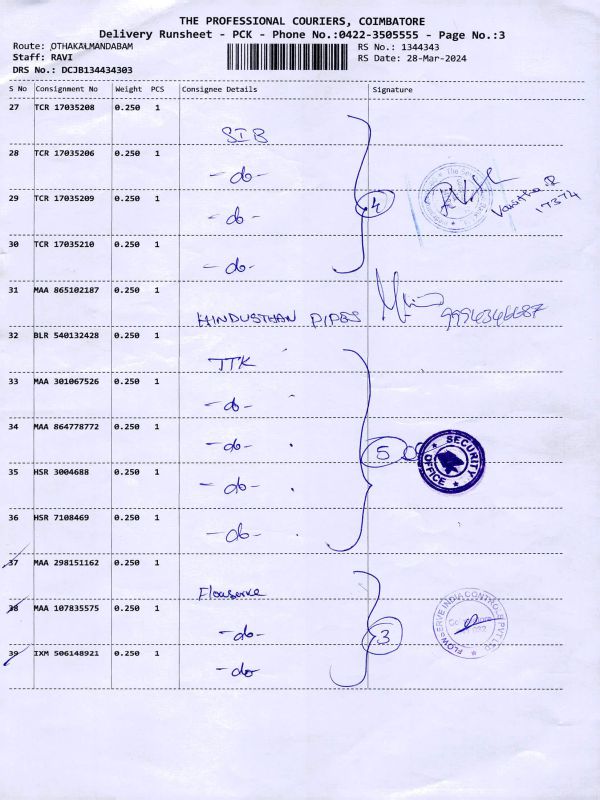 THE PROFESSIONAL COURIERS, COIMBATORE
Delivery Runsheet - PCK - Phone No.:0422-3505555 - Page No.:3
Route: OTHAKALMANDABAM RS No.: 1344343
Staff: RAVI RS Date: 28-Mar-2024
DRS No.: DCJB134434303
S No Consignment No Weight PCS Consignee Details Signature
27 TCR 17035208 0.250 1
SIB
28 TCR 17035206 0.250 1
-do-
29 TCR 17035209 0.250 1
-do- 4
17374
30 TCR 17035210 0.250 1
-do-
31 MAA 865102187 0.250 1
HINDUSTHAN PIPES
32 BLR 540132428 0.250 1
TTK
33 MAA 301067526 0.250 1
-do-
34 MAA 864778772 0.250 1
-do- 5 SECURITY OFFICE
35 HSR 3004688 0.250 1
-do-
36 HSR 7108469 0.250 1
-do-
37 MAA 298151162 0.250 1
Floaserve
38 MAA 107835575 0.250 1
-do- 3 FLOWSERVE INDIA CONTROLS PVT LTD
39 IXM 506148921 0.250 1
-do-